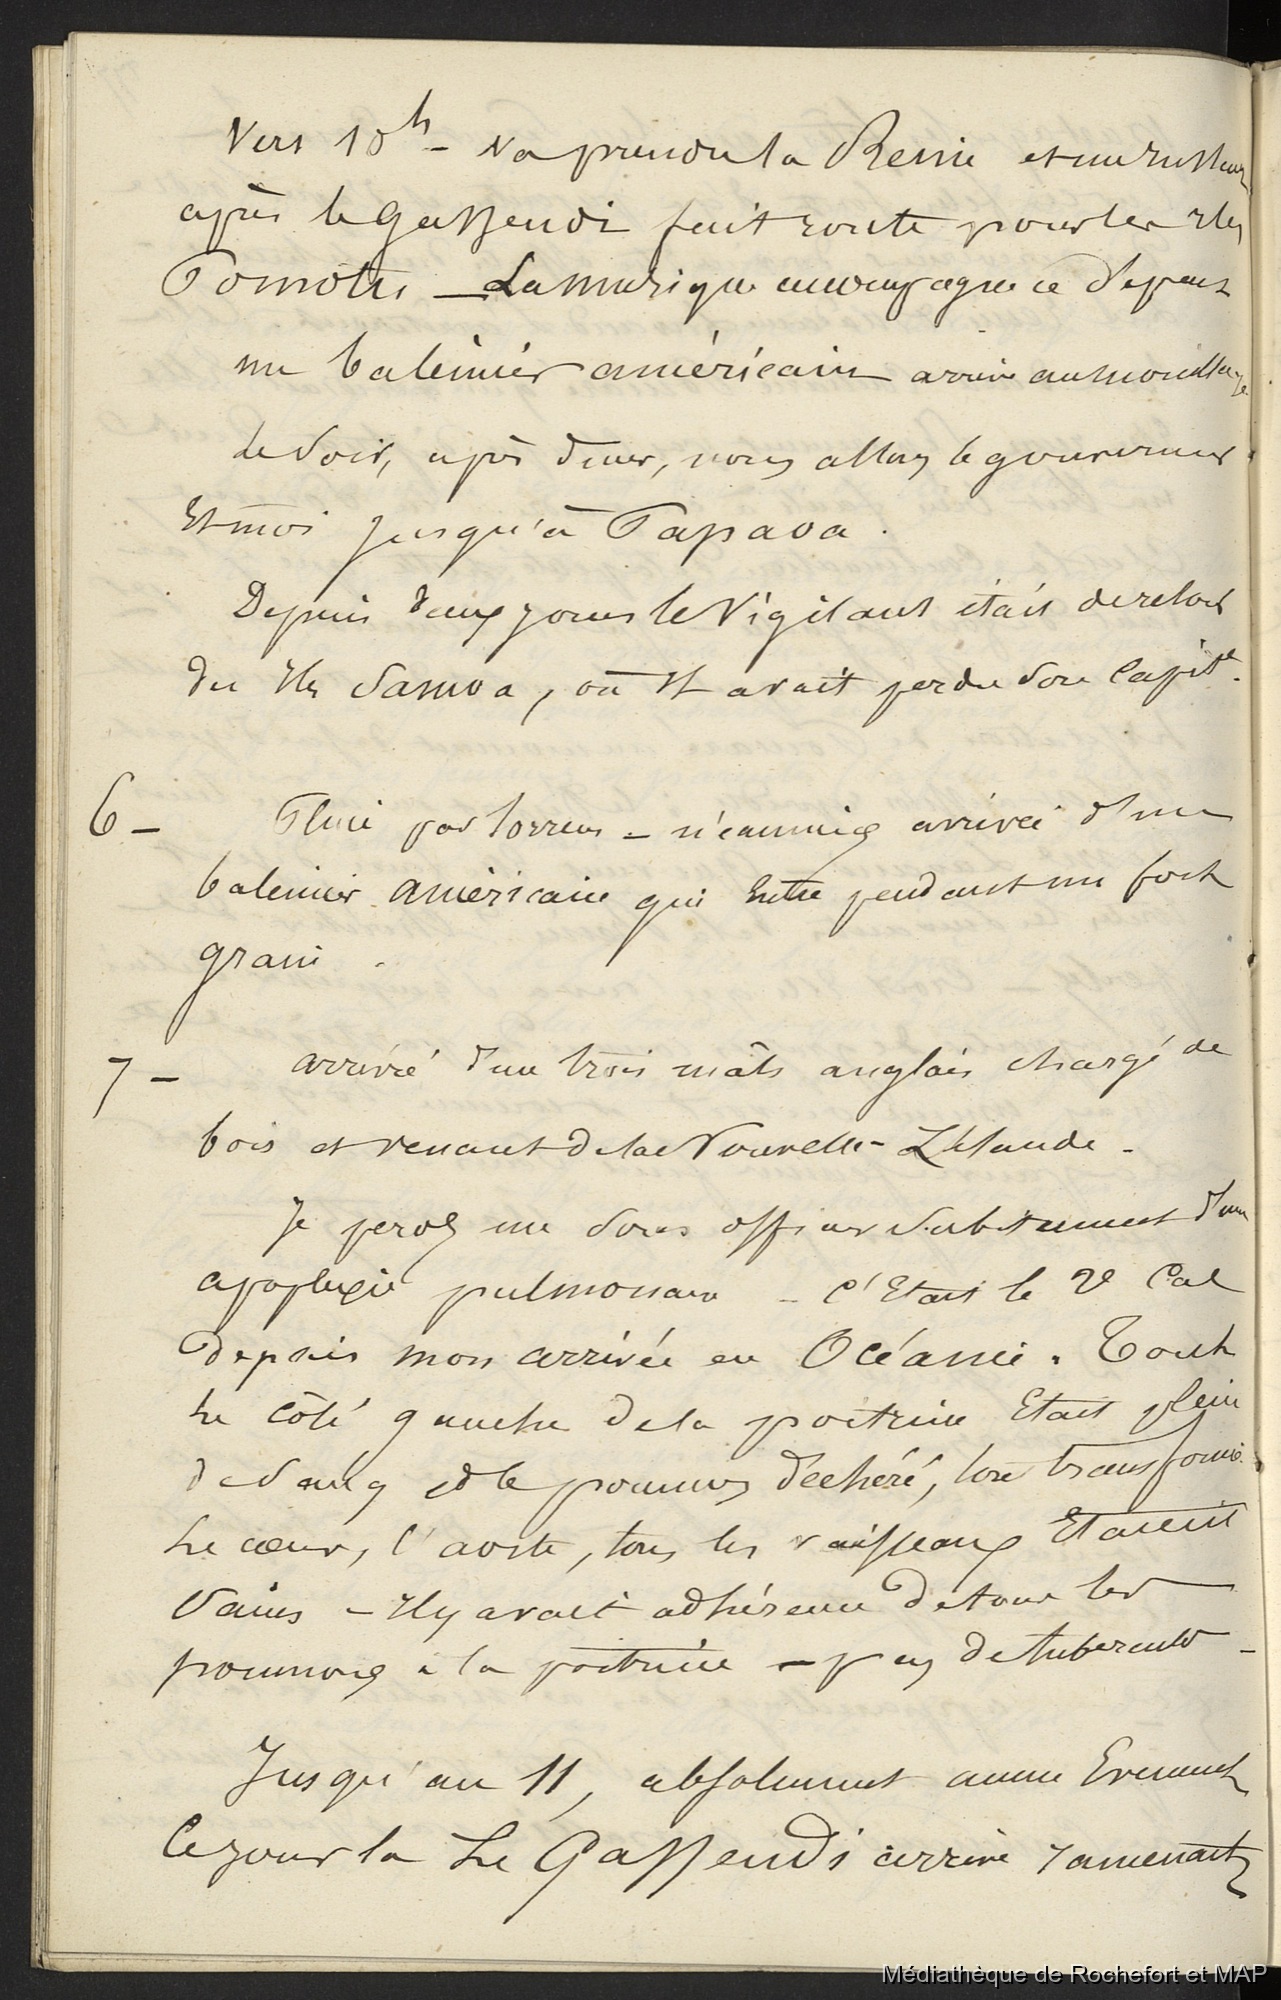 Vers 10h - va prendre la Reine et une heure
après le Gassendi fait route pour les iles
Pomotu — La musique accompagne ce départ
un baleinier américain arrive au mouillage
Le soir, après diner, nous allons le gouverneur
Et moi jusqu'à Papava.
Depuis deux jours le Vigilant était de retour
des Iles Samoa, où Il avait perdu son Capite.
6 - Pluie par torrens - néanmoins arrivée d'un
baleinier américain qui Entre pendant un fort
grain.
7 - arrivée d'un trois mâts anglais chargé de
bois et venant de la Nouvelle-Zélande -
Je perds un sous officier subitement d'une
apoplexie pulmonaire - C'Etait le 2e Cas
depuis mon arrivée en Océanie. Tout
Le côté gauche de la poitrine Etait plein
de sang et le poumon déchiré, tout transformé.
Le cœur, l'aorte, tous les vaisseaux Etaient
Sains - Il y avait adhérence de tous les
poumons à la poitrine - pas de tubercules -
Jusqu'au 11, absolument aucun Evenement
Ce jour la Le Gassendi arrive ramenant
Médiathèque de Rochefort et MAP